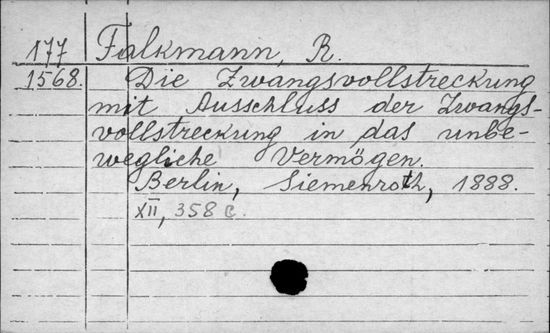 177 Falkmann, R.
1568. Die Zwangsvollstreckung
mit Ausschluss der Zwangs-
vollstreckung in das unbe-
wegliche Vermögen.
Berlin, Siemenroth, 1888.
XII, 358 c.